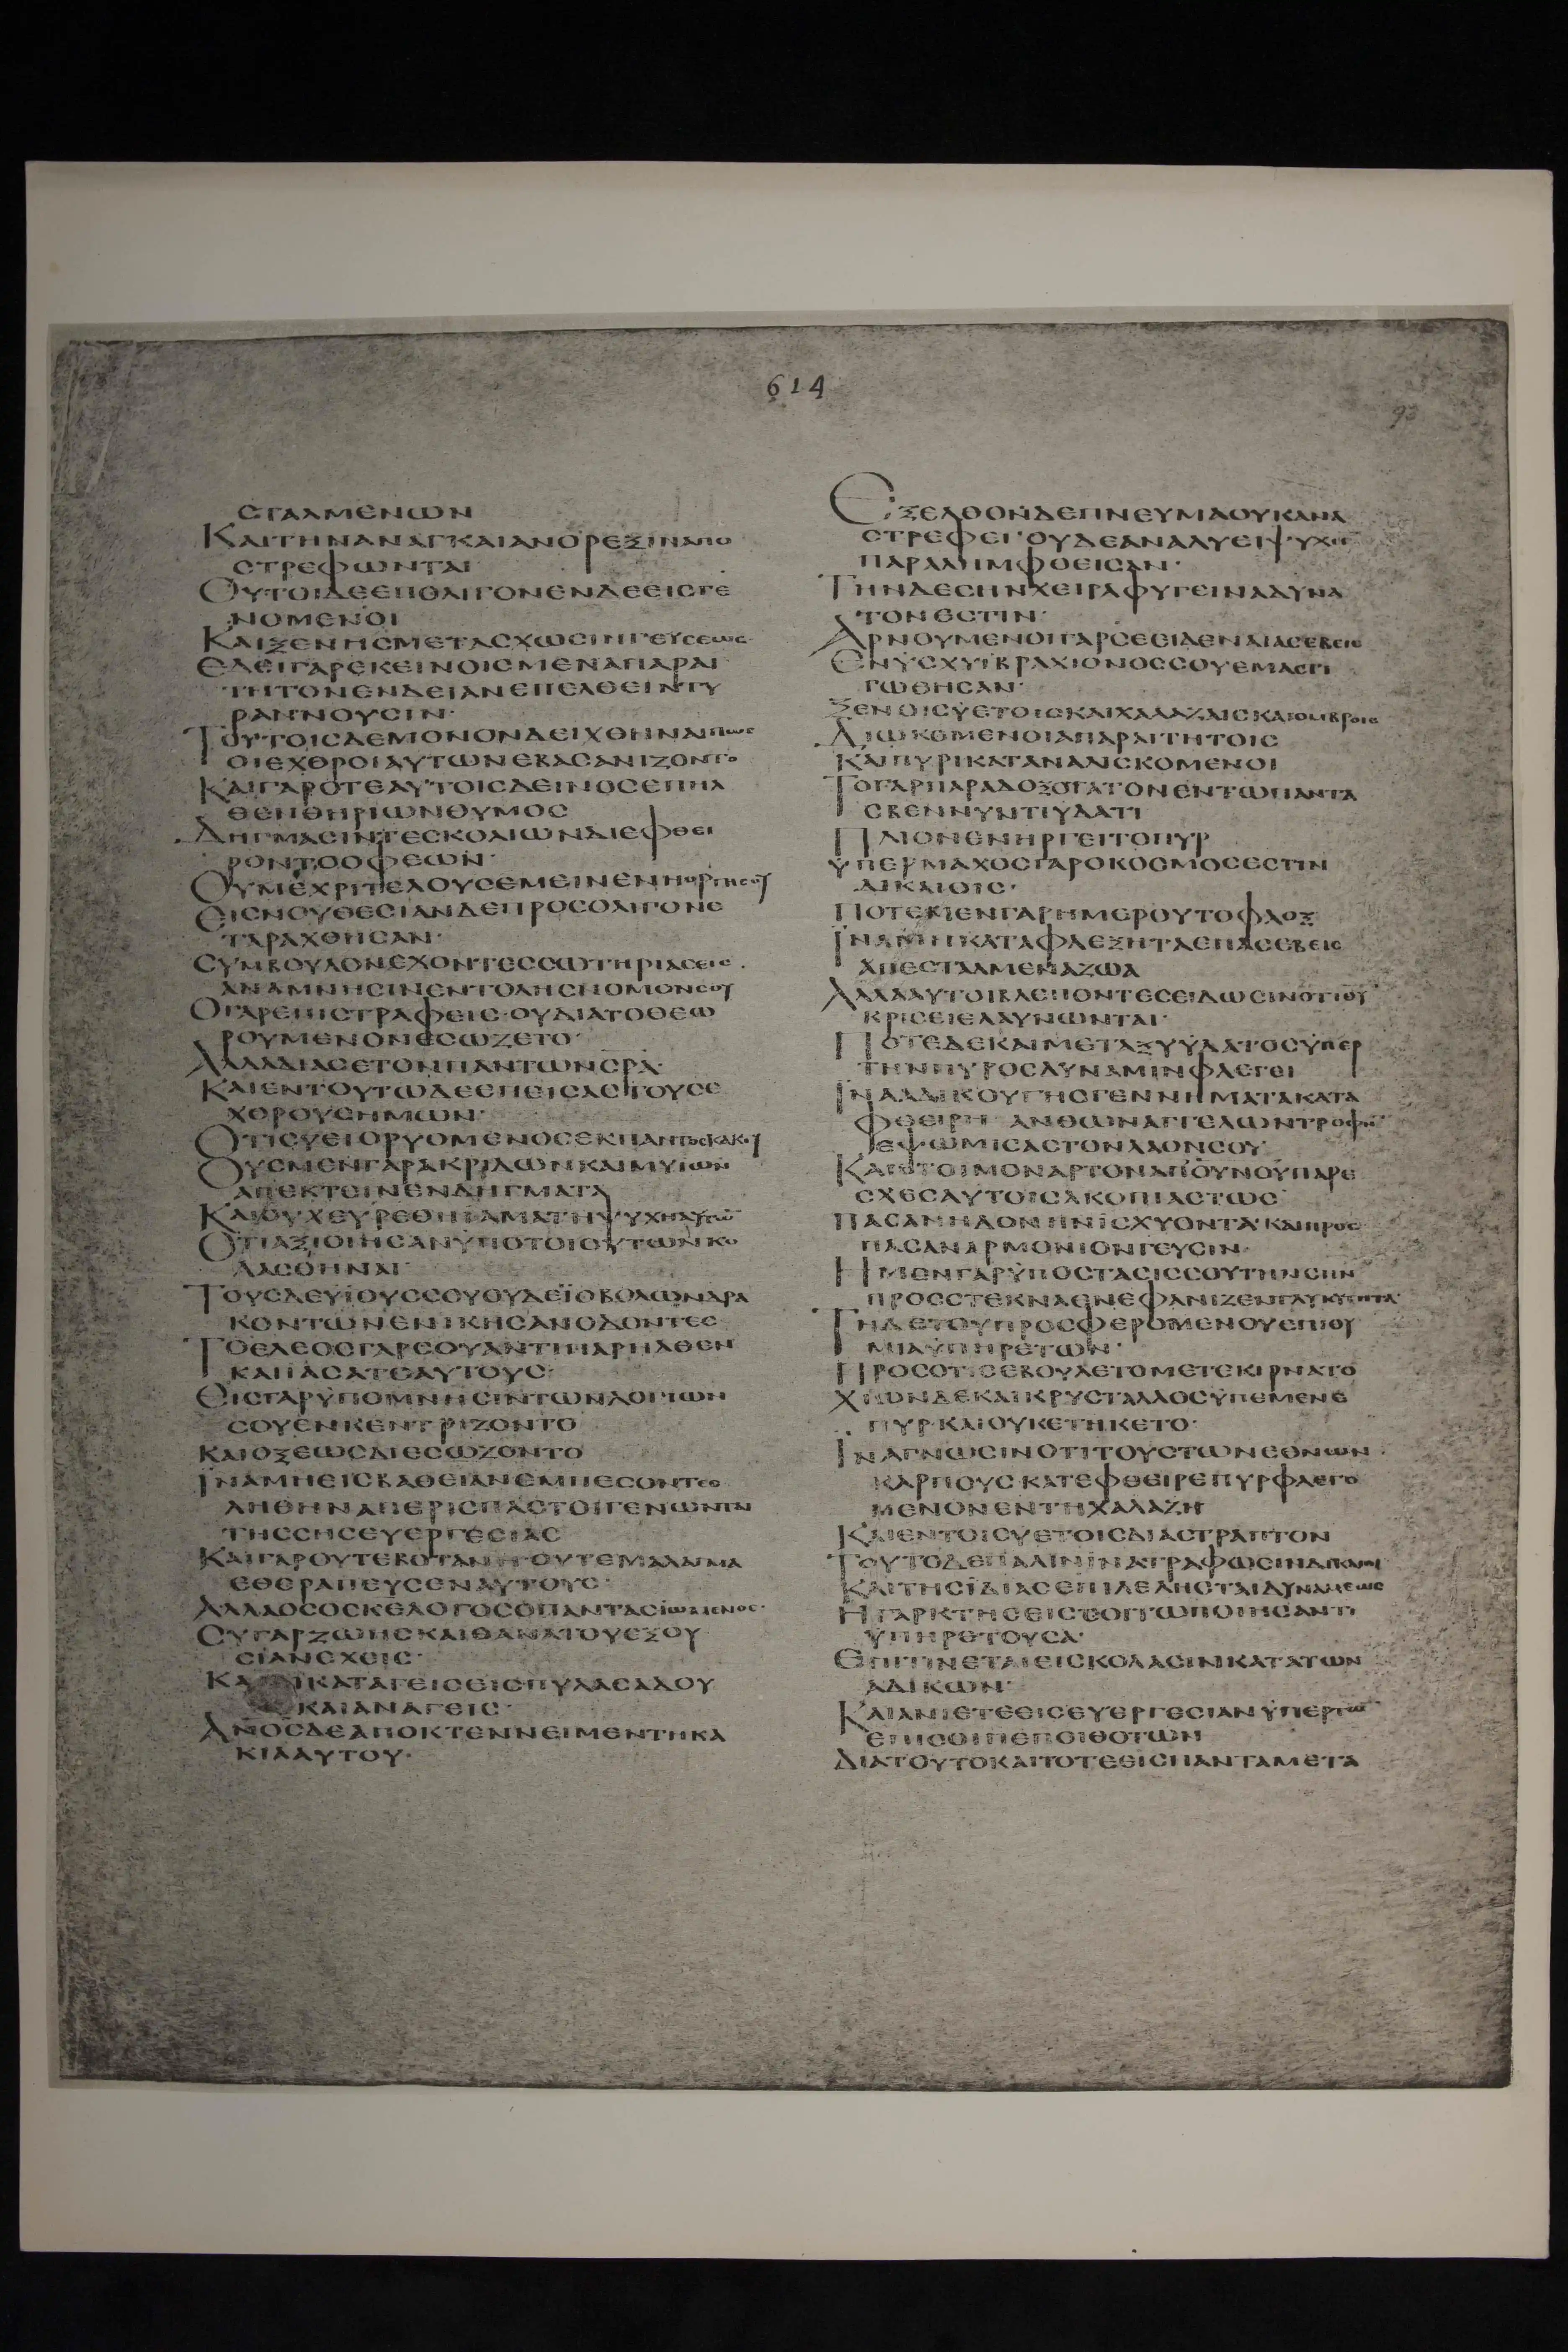 614
93
ϹΤΑΛΜΕΝΩΝ
ΚΑΙΤΗΝΑΝΑΓΚΑΙΑΝΟΡΕΞΙΝΑΠΟ
ϹΤΡΕΦΩΝΤΑΙ
ΟΥΤΟΙΔΕΕΠΟΛΙΓΟΝΕΝΔΕΕΙϹΓΕ
ΝΟΜΕΝΟΙ
ΚΑΙΞΕΝΗϹΜΕΤΑϹΧΩϹΙΓΕΥϹΕΩϹ·
ΕΔΕΙΓΑΡΕΚΕΙΝΟΙϹΜΕΝΑΠΑΡΑΙ
ΤΗΤΟΝΕΝΔΕΙΑΝΕΠΕΛΘΕΙΝΤΥ
ΡΑΝΝΟΥϹΙΝ·
ΤΟΥΤΟΙϹΔΕΜΟΝΟΝΔΕΙΧΘΗΝΑΙΠΩϹ
ΟΙΕΧΘΡΟΙΑΥΤΩΝΕΒΑϹΑΝΙΖΟΝΤΟ
ΚΑΙΓΑΡΟΤΕΑΥΤΟΙϹΔΕΙΝΟϹΕΠΗΛ
ΘΕΝΘΗΡΙΩΝΘΥΜΟϹ
ΔΗΓΜΑϹΙΝΤΕϹΚΟΛΙΩΝΔΙΕΦΘΕΙ
ΡΟΝΤΟΟΦΕΩΝ·
ΟΥΜΕΧΡΙΤΕΛΟΥϹΕΜΕΙΝΕΝΗΟΡΓΗϹΟΥ
ΕΙϹΝΟΥΘΕϹΙΑΝΔΕΠΡΟϹΟΛΙΓΟΝΕ
ΤΑΡΑΧΘΗϹΑΝ·
ϹΥΜΒΟΥΛΟΝΕΧΟΝΤΕϹϹΩΤΗΡΙΑϹΕΙϹ·
ΑΝΑΜΝΗϹΙΝΕΝΤΟΛΗϹΝΟΜΟΝϹΟΥ
ΟΓΑΡΕΠΙϹΤΡΑΦΕΙϹ·ΟΥΔΙΑΤΟΘΕΩ
ΡΟΥΜΕΝΟΝΕϹΩΖΕΤΟ·
ΑΛΛΑΔΙΑϹΕΤΟΝΠΑΝΤΩΝϹΡΑ·
ΚΑΙΕΝΤΟΥΤΩΔΕΕΠΕΙϹΑϹΤΟΥϹΕ
ΧΘΡΟΥϹΗΜΩΝ·
ΟΤΙϹΥΕΙΟΡΥΟΜΕΝΟϹΕΚΠΑΝΤΟϹΚΑΚΟΥ
ΟΥϹΜΕΝΓΑΡΑΚΡΙΔΩΝΚΑΙΜΥΙΩΝ
ΑΠΕΚΤΕΙΝΕΝΔΗΓΜΑΤΑ
ΚΑΙΟΥΧΕΥΡΕΘΗΙΑΜΑΤΗΨΥΧΗΑΥΤΩ̅
ΟΤΙΑΞΙΟΙΗϹΑΝΫΠΟΤΟΙΟΥΤΩΝΚΟ
ΛΑϹΘΗΝΑΙ·
ΤΟΥϹΔΕΥΪΟΥϹϹΟΥΟΥΔΕΪΟΒΟΛΩΝΔΡΑ
ΚΟΝΤΩΝΕΝΙΚΗϹΑΝΟΔΟΝΤΕϹ
ΤΟΕΛΕΟϹΓΑΡϹΟΥΑΝΤΙΠΑΡΗΛΘΕΝ
ΚΑΙΙΑϹΑΤΕΑΥΤΟΥϹ·
ΕΙϹΓΑΡΫΠΟΜΝΗϹΙΝΤΩΝΛΟΓΙΩΝ
ϹΟΥΕΝΚΕΝΤΡΙΖΟΝΤΟ
ΚΑΙΟΞΕΩϹΔΙΕϹΩΖΟΝΤΟ
ΙΝΑΜΗΕΙϹΒΑΘΕΙΑΝΕΜΠΕϹΟΝΤΕϹ
ΛΗΘΗΝΑΠΕΡΙϹΠΑϹΤΟΙΓΕΝΩΝΤΑΙ
ΤΗϹϹΗϹΕΥΕΡΓΕϹΙΑϹ
ΚΑΙΓΑΡΟΥΤΕΒΟΤΑΝΗΟΥΤΕΜΑΛΑΓΜΑ
ΕΘΕΡΑΠΕΥϹΕΝΑΥΤΟΥϹ·
ΑΛΛΑΟϹΟϹΚΕΛΟΓΟϹΟΠΑΝΤΑϹΙΩΜΕΝΟϹ·
ϹΥΓΑΡΖΩΗϹΚΑΙΘΑΝΑΤΟΥΕΞΟΥ
ϹΙΑΝΕΧΕΙϹ·
ΚΑΙΚΑΤΑΓΕΙϹΕΙϹΠΥΛΑϹΑΔΟΥ
ΚΑΙΑΝΑΓΕΙϹ·
ΑΝΟ̅ϹΔΕΑΠΟΚΤΕΝΝΕΙΜΕΝΤΗΚΑ
ΚΙΑΑΥΤΟΥ·
ΕΞΕΛΘΟΝΔΕΠΝΕΥΜΑΟΥΚΑΝΑ
ϹΤΡΕΦΕΙ·ΟΥΔΕΑΝΑΛΥΕΙΨΥΧΗ̅
ΠΑΡΑΛΗΜΦΘΕΙϹΑΝ·
ΤΗΝΔΕϹΗΝΧΕΙΡΑΦΥΓΕΙΝΑΔΥΝΑ
ΤΟΝΕϹΤΙΝ·
ΑΡΝΟΥΜΕΝΟΙΓΑΡϹΕΕΙΔΕΝΑΙΑϹΕΒΕΙϹ
ΕΝΙϹΧΥΪΒΡΑΧΙΟΝΟϹϹΟΥΕΜΑϹΤΙ
ΓΩΘΗϹΑΝ·
ΞΕΝΟΙϹΫΕΤΟΙϹΚΑΙΧΑΛΑΖΑΙϹΚΑΙΟΜΒΡΟΙϹ
ΔΙΩΚΟΜΕΝΟΙΑΠΑΡΑΙΤΗΤΟΙϹ
ΚΑΙΠΥΡΙΚΑΤΑΝΑΛΙϹΚΟΜΕΝΟΙ
ΤΟΓΑΡΠΑΡΑΔΟΞΟΤΑΤΟΝΕΝΤΩΠΑΝΤΑ
ϹΒΕΝΝΥΝΤΙΫΔΑΤΙ
ΠΛΙΟΝΕΝΗΡΓΕΙΤΟΠΥΡ
ΫΠΕΡΜΑΧΟϹΓΑΡΟΚΟϹΜΟϹΕϹΤΙΝ
ΔΙΚΑΙΟΙϹ·
ΠΟΤΕΜΕΝΓΑΡΗΜΕΡΟΥΤΟΦΛΟΞ
ΙΝΑΜΗΚΑΤΑΦΛΕΞΗΤΑΕΠΑϹΕΒΕΙϹ
ΑΠΕϹΤΑΛΜΕΝΑΖΩΑ
ΑΛΛΑΥΤΟΙΒΛΕΠΟΝΤΕϹΕΙΔΩϹΙΝΟΤΙΘΥ
ΚΡΙϹΕΙΕΛΑΥΝΩΝΤΑΙ·
ΠΟΤΕΔΕΚΑΙΜΕΤΑΞΥΫΔΑΤΟϹΫΠΕΡ
ΤΗΝΠΥΡΟϹΔΥΝΑΜΙΝΦΛΕΓΕΙ
ΙΝΑΑΔΙΚΟΥΓΗϹΓΕΝΝΗΜΑΤΑΚΑΤΑ
ΦΘΕΙΡΗ ΑΝΘΩΝΑΓΓΕΛΩΝΤΡΟΦΗ̅
ΕΨΩΜΙϹΑϹΤΟΝΛΑΟΝϹΟΥ
ΚΑΙΕΤΟΙΜΟΝΑΡΤΟΝΑΠΟΥΝΟΥΠΑΡΕ
ϹΧΕϹΑΥΤΟΙϹΑΚΟΠΙΑϹΤΩϹ
ΠΑϹΑΝΗΔΟΝΗΝΙϹΧΥΟΝΤΑ·ΚΑΙΠΡΟϹ
ΠΑϹΑΝΑΡΜΟΝΙΟΝΓΕΥϹΙΝ·
ΗΜΕΝΓΑΡΫΠΟϹΤΑϹΙϹϹΟΥΤΗΝϹΗΝ
ΠΡΟϹϹΤΕΚΝΑΕΝΕΦΑΝΙΖΕΝΓΛΥΚΥΤΗΤΑ·
ΤΗΔΕΤΟΥΠΡΟϹΦΕΡΟΜΕΝΟΥΕΠΙΘΥ
ΜΙΑΫΠΗΡΕΤΩΝ·
ΠΡΟϹΟΤΙϹΕΒΟΥΛΕΤΟΜΕΤΕΚΙΡΝΑΤΟ
ΧΙΩΝΔΕΚΑΙΚΡΥϹΤΑΛΛΟϹΫΠΕΜΕΝΕ
ΠΥΡ·ΚΑΙΟΥΚΕΤΗΚΕΤΟ·
ΙΝΑΓΝΩϹΙΝΟΤΙΤΟΥϹΤΩΝΕΘΝΩΝ
ΚΑΡΠΟΥϹΚΑΤΕΦΘΕΙΡΕΠΥΡΦΛΕΓΟ
ΜΕΝΟΝΕΝΤΗΧΑΛΑΖΗ
ΚΑΙΕΝΤΟΙϹΫΕΤΟΙϹΔΙΑϹΤΡΑΠΤΟΝ
ΤΟΥΤΟΔΕΠΑΛΙΝΙΝΑΤΡΑΦΩϹΙΝΔΙΚΑΙΟΙ
ΚΑΙΤΗϹΪΔΙΑϹΕΠΙΛΕΛΗϹΤΑΙΔΥΝΑΜΕΩϹ
ΗΓΑΡΚΤΗϹΕΙϹϹΟΙΤΩΠΟΙΗϹΑΝΤΙ
ΫΠΗΡΕΤΟΥϹΑ·
ΕΠΙΤΙΝΕΤΑΙΕΙϹΚΟΛΑϹΙΝΚΑΤΑΤΩΝ
ΑΔΙΚΩΝ·
ΚΑΙΑΝΙΕΤΕΕΙϹΕΥΕΡΓΕϹΙΑΝΫΠΕΡΤΩ̅
ΕΠΙϹΟΙΠΕΠΟΙΘΟΤΩΝ
ΔΙΑΤΟΥΤΟΚΑΙΤΟΤΕΕΙϹΠΑΝΤΑΜΕΤΑ